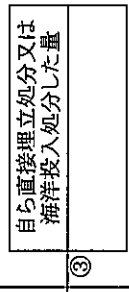 自ら直接埋立処分又は
海洋投入処分した量
③